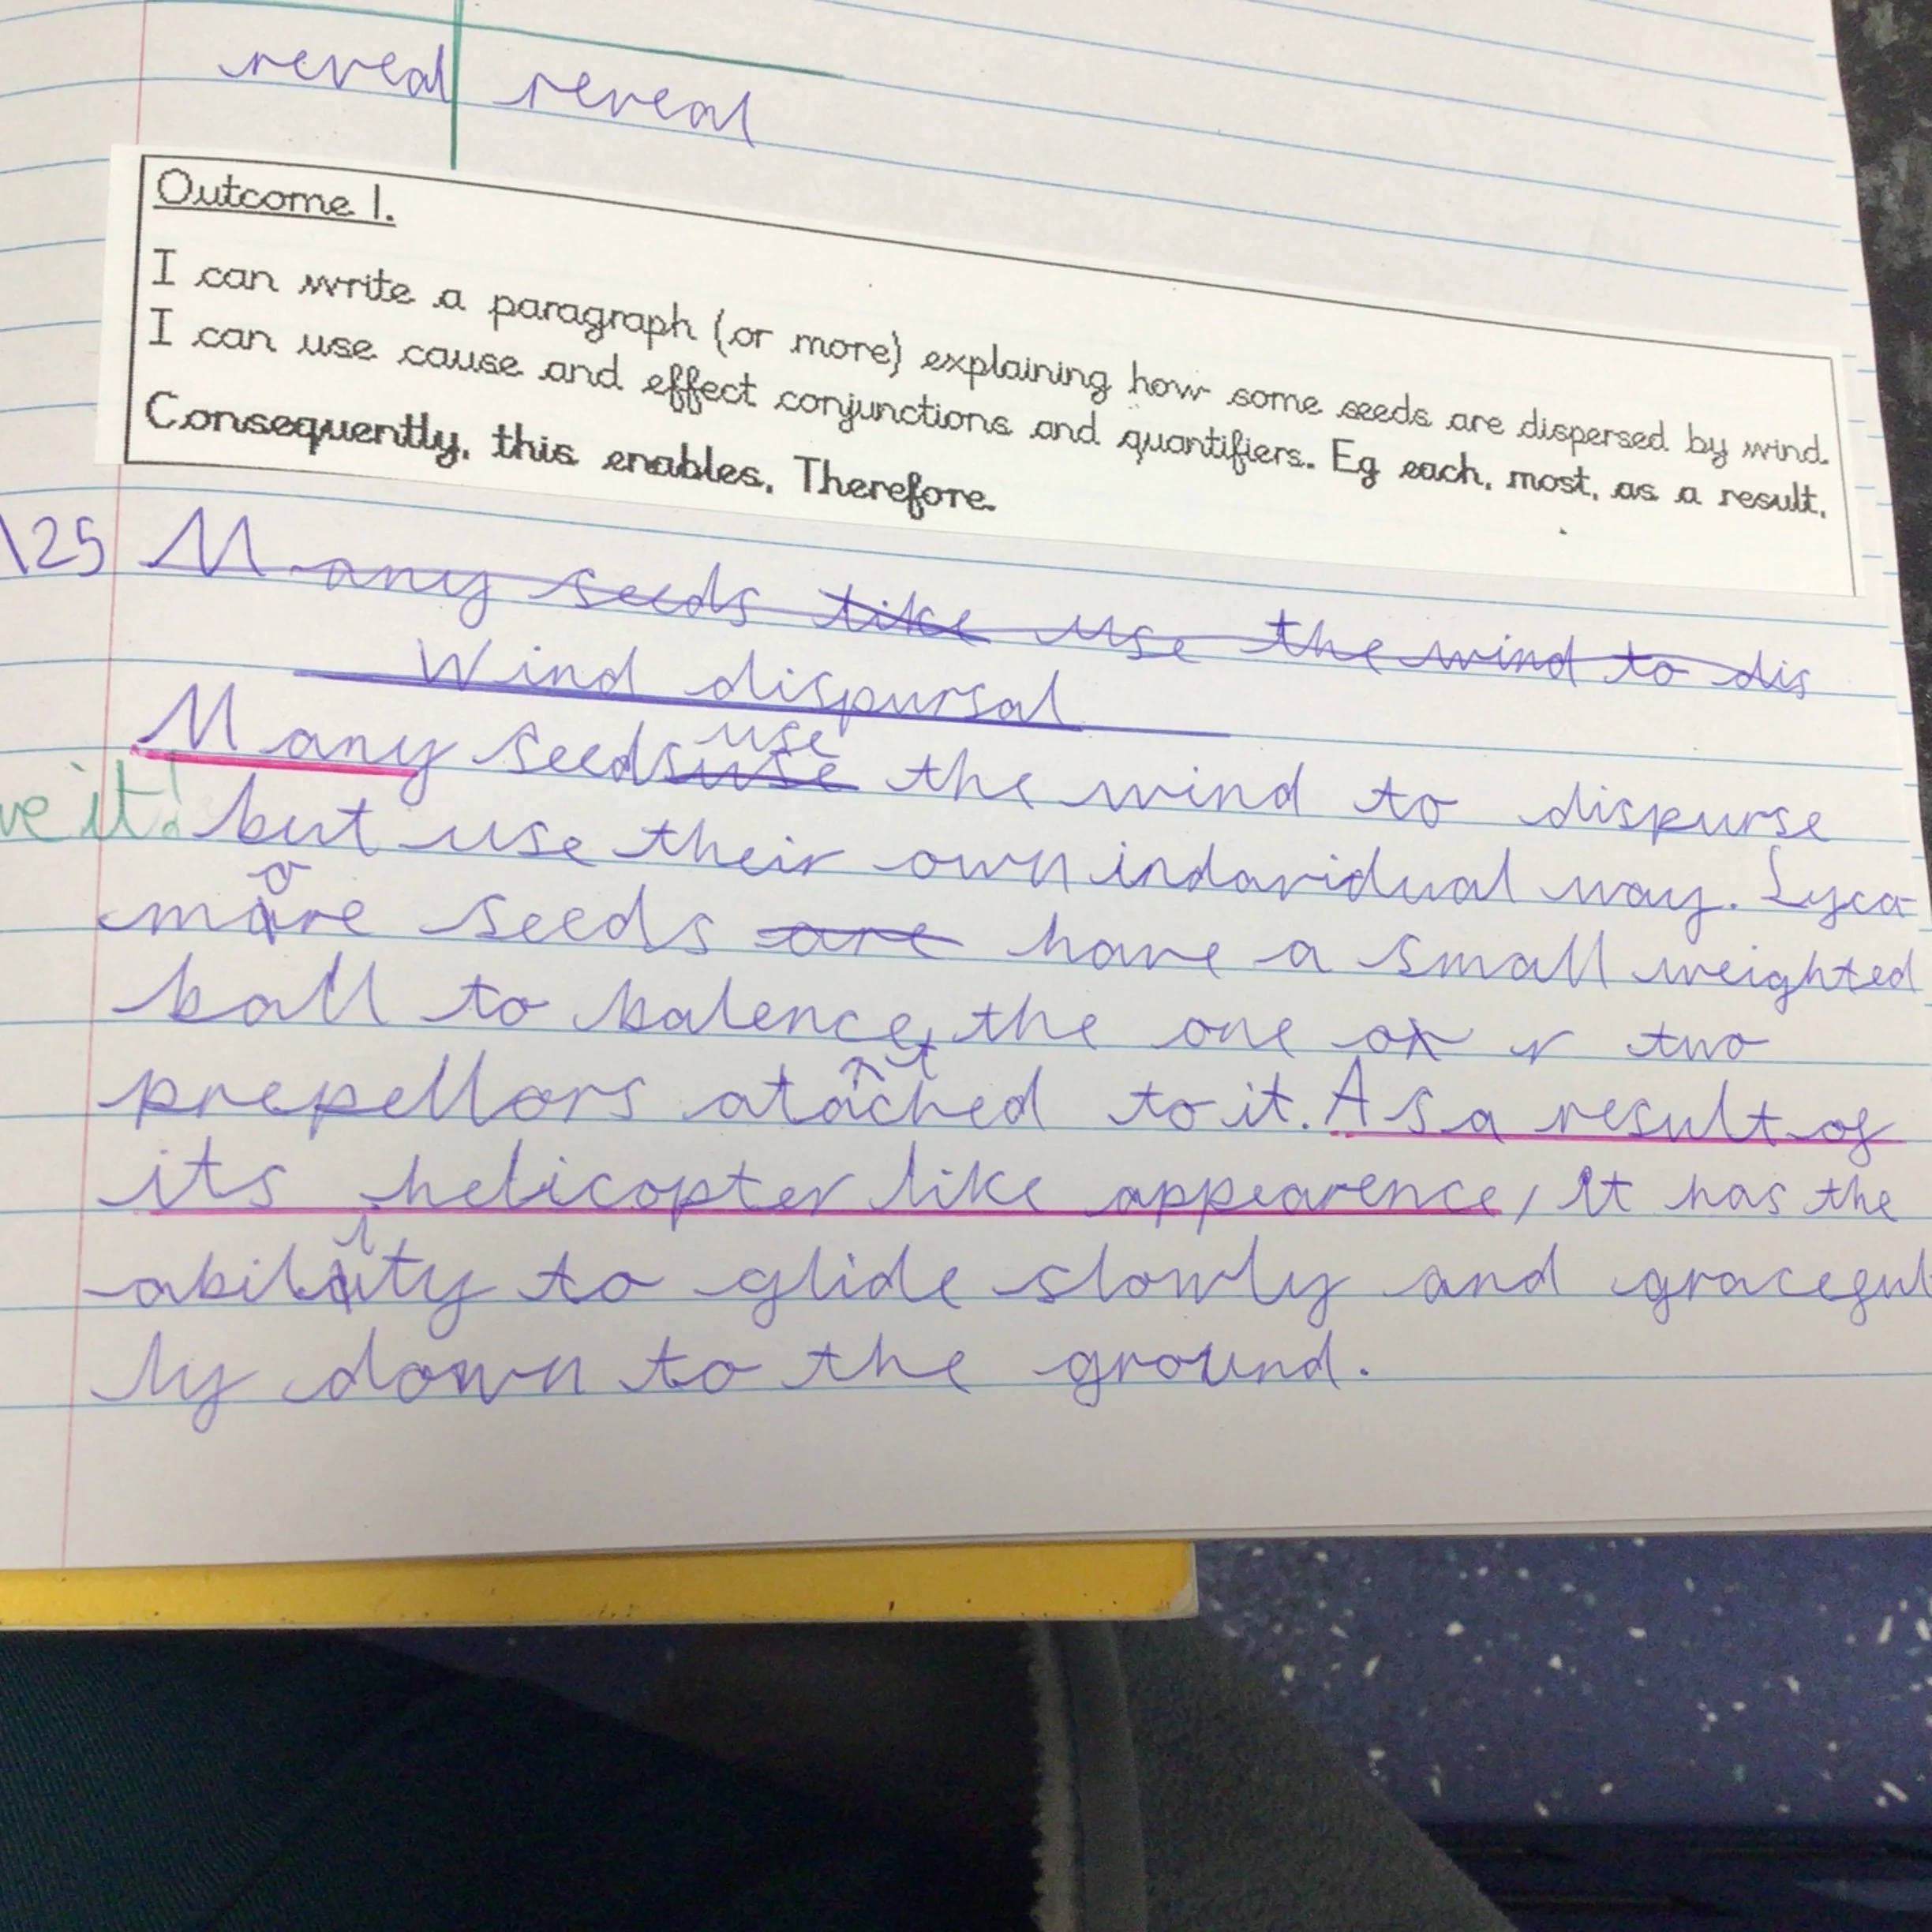 reveal reveal
Outcome 1.
I can write a paragraph (or more) explaining how some seeds are dispersed by wind.
I can use cause and effect conjunctions and quantifiers. Eg each, most, as a result,
Consequently, this enables, Therefore.
\25 Many seeds like use the wind to dis
Wind dispursal
use
Many seeds use the wind to dispurse
ve it! but use their own indavidual way. Lyca-
more seeds are have a small weighted
ball to balence, the one or two
prepellors atatched to it. As a result of
its helicopter like appearence, it has the
ability to glide slowly and graceful
ly down to the ground.